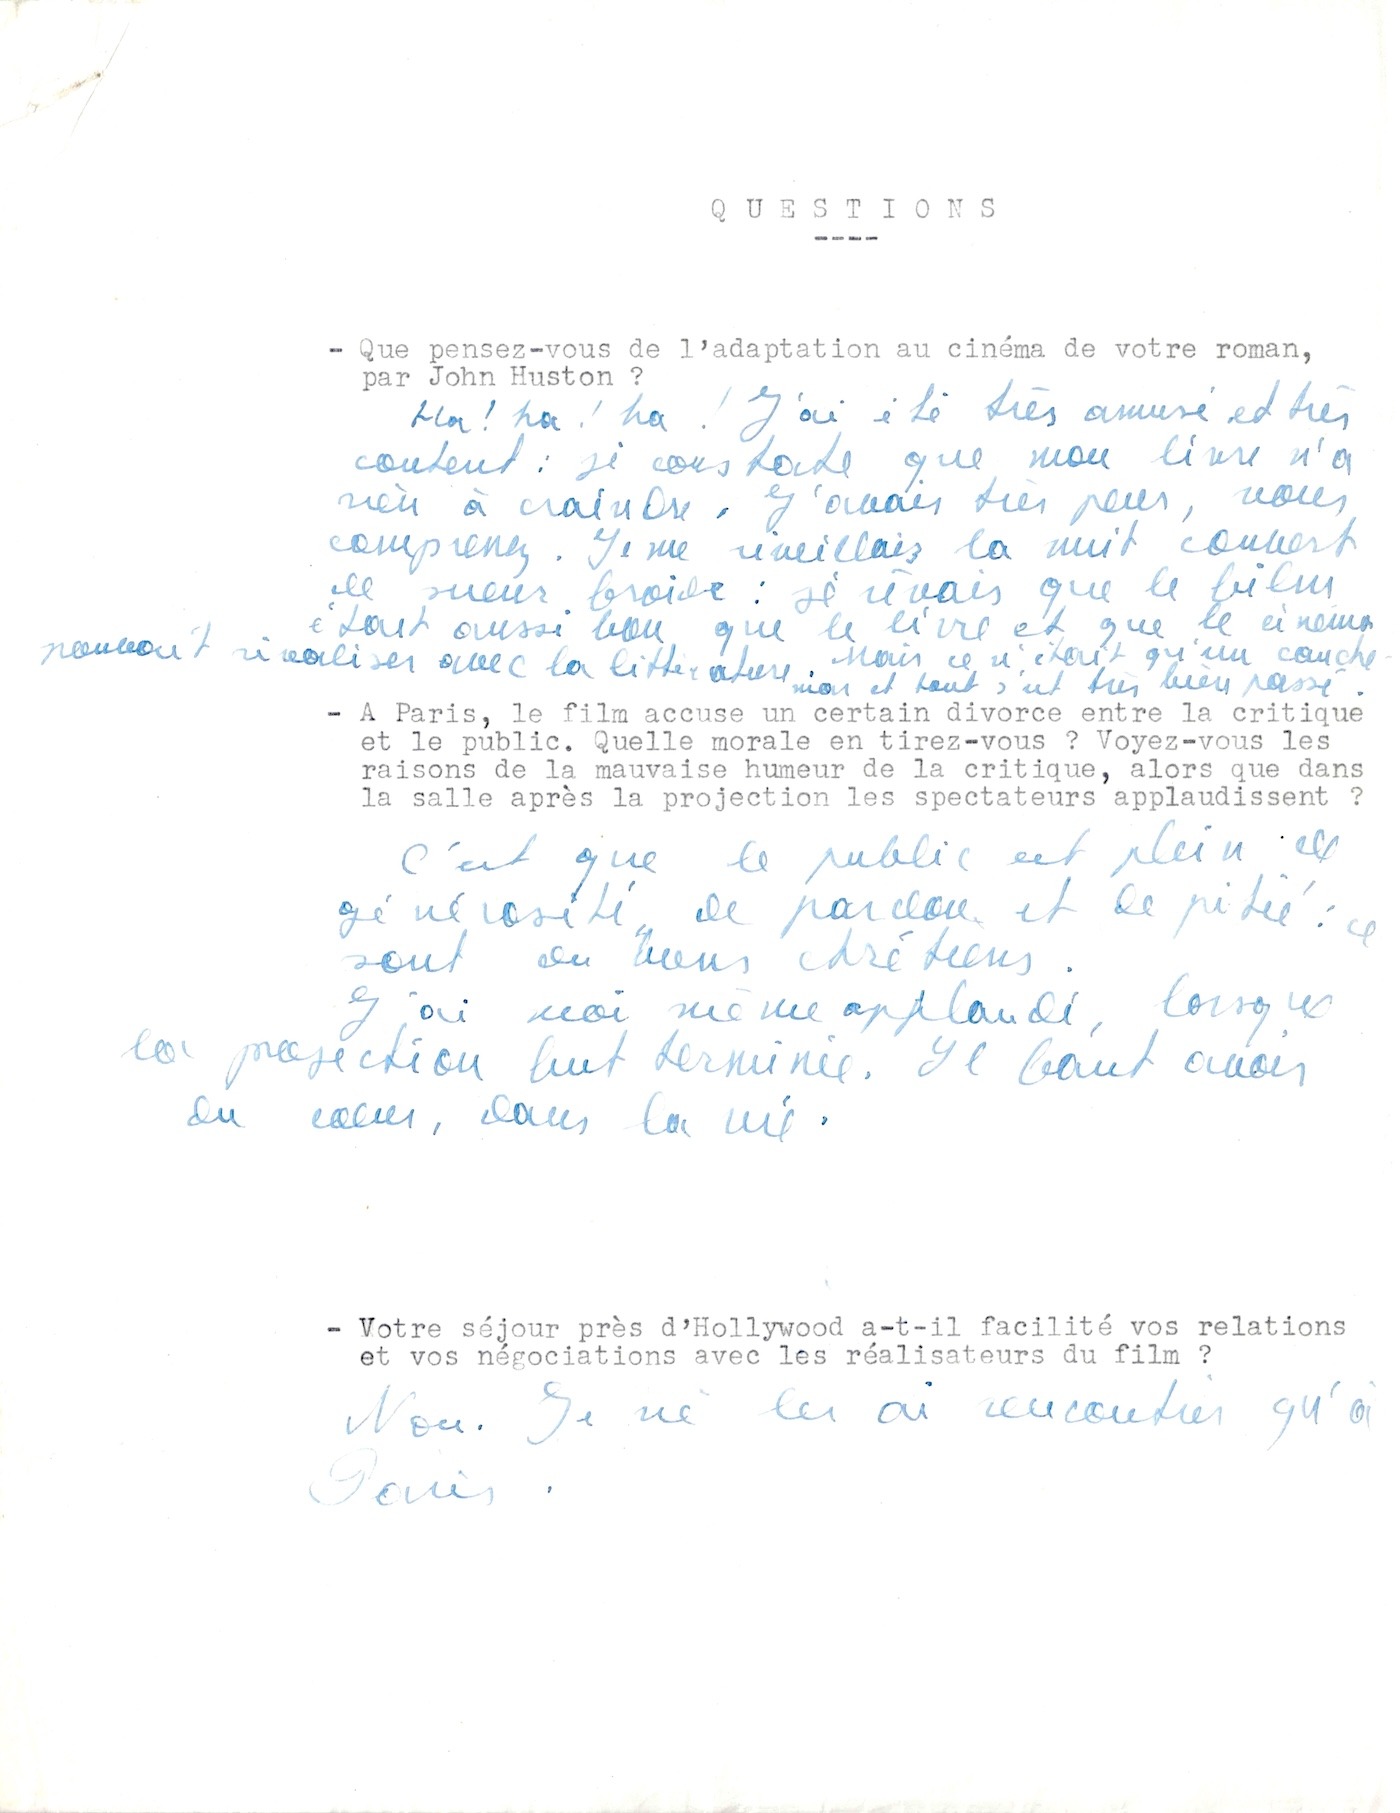 QUESTIONS
----
- Que pensez-vous de l'adaptation au cinéma de votre roman,
par John Huston ?
Ha! ha! ha! J'ai été très amusé et très
content : je constate que mon livre n'a
rien à craindre. J'avais très peur, vous
comprenez. Je me réveillais la nuit couvert
de sueur froide : je rêvais que le film
était aussi bon que le livre et que le cinéma
pouvait rivaliser avec la littérature. Mais ce n'était qu'un cauche-
mar et tout s'est très bien passé.
- A Paris, le film accuse un certain divorce entre la critique
et le public. Quelle morale en tirez-vous ? Voyez-vous les
raisons de la mauvaise humeur de la critique, alors que dans
la salle après la projection les spectateurs applaudissent ?
C'est que le public est plein de
générosité, de pardon et de pitié : ce
sont de bons chrétiens.
J'ai moi même applaudi, lorsque
la projection fut terminée. Il faut avoir
du cœur, dans la vie.
- Votre séjour près d'Hollywood a-t-il facilité vos relations
et vos négociations avec les réalisateurs du film ?
Non. Je ne les ai rencontrés qu'à
Paris.